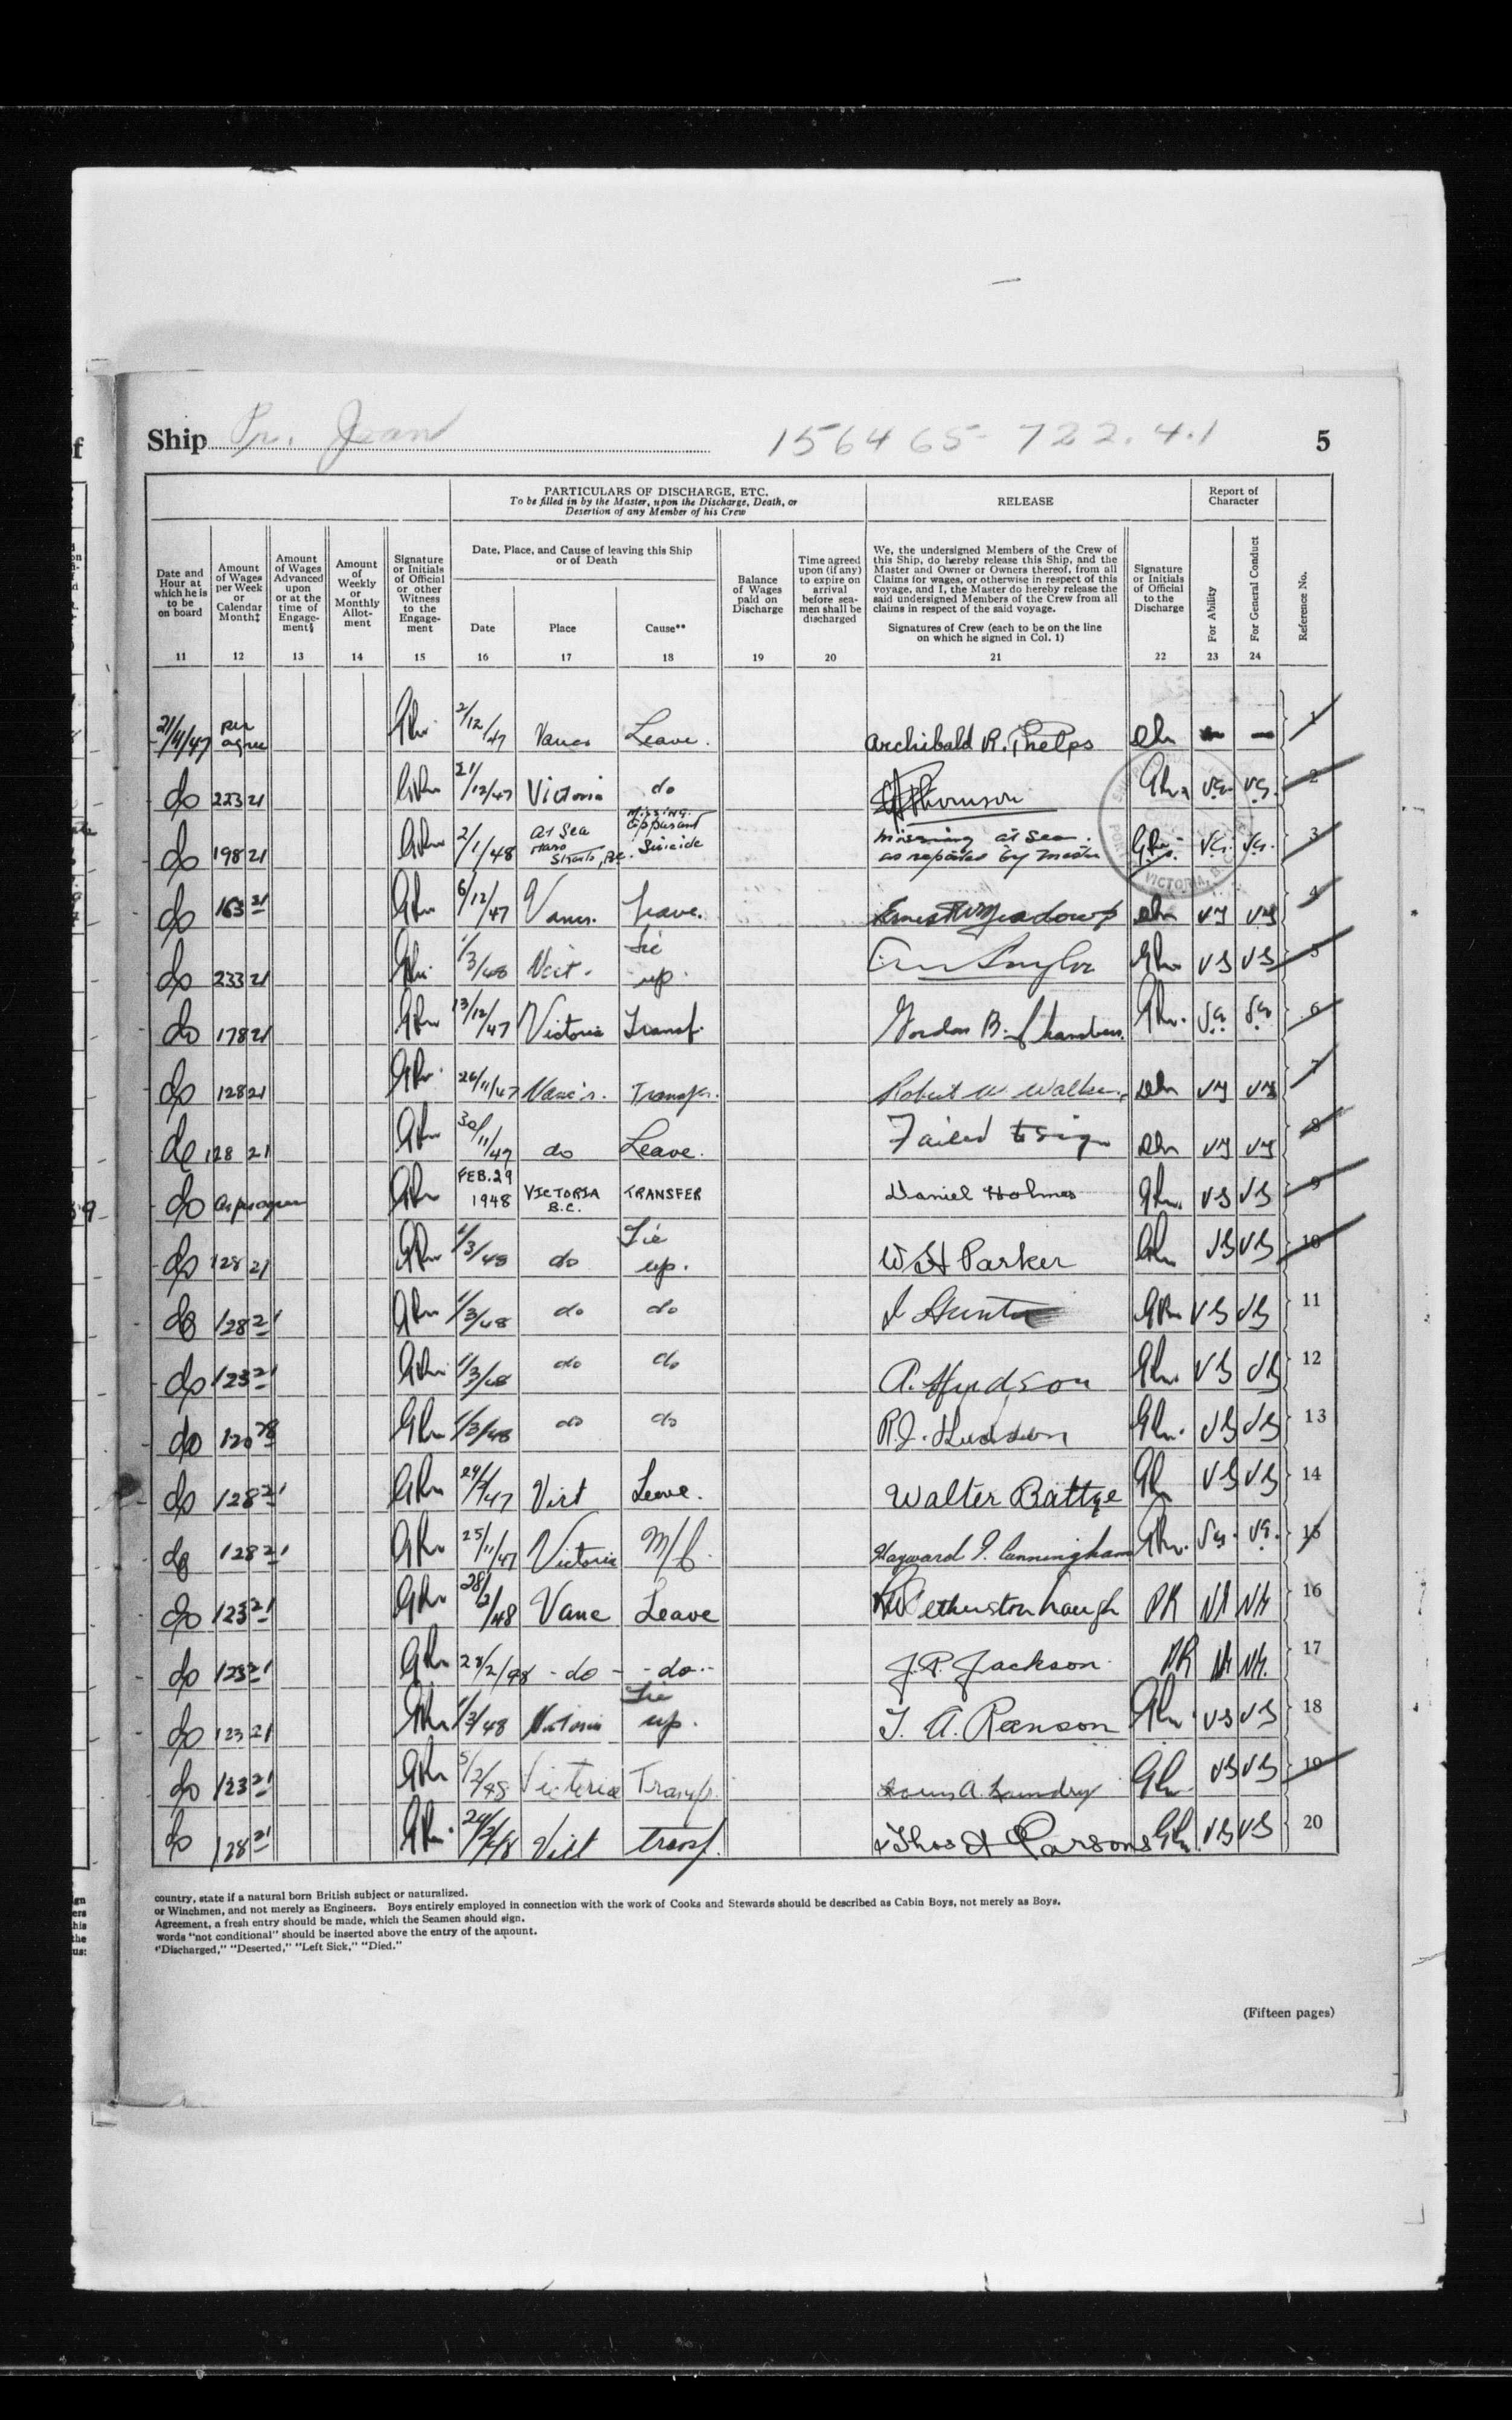 Ship Pr. Jean 156465 - 722.4.1 5
PARTICULARS OF DISCHARGE, ETC.
To be filled in by the Master, upon the Discharge, Death, or
Desertion of any Member of his Crew
RELEASE
Report of
Character
Date and
Hour at
which he is
to be
on board
Amount
of Wages
per Week
or
Calendar
Month‡
Amount
of Wages
Advanced
upon
or at the
time of
Engage-
ment§
Amount
of
Weekly
or
Monthly
Allot-
ment
Signature
or Initials
of Official
or other
Witness
to the
Engage-
ment
Date, Place, and Cause of leaving this Ship
or of Death
Date Place Cause**
Balance
of Wages
paid on
Discharge
Time agreed
upon (if any)
to expire on
arrival
before sea-
men shall be
discharged
We, the undersigned Members of the Crew of
this Ship, do hereby release this Ship, and the
Master and Owner or Owners thereof, from all
Claims for wages, or otherwise in respect of this
voyage, and I, the Master do hereby release the
said undersigned Members of the Crew from all
claims in respect of the said voyage.
Signatures of Crew (each to be on the line
on which he signed in Col. 1)
Signature
or Initials
of Official
to the
Discharge
For Ability
For General Conduct
Reference No.
11 12 13 14 15 16 17 18 19 20 21 22 23 24
21/11/47 per agree 2/12/47 Vanc. Leave. Archibald R. Phelps — — 1
do 223 21 21/12/47 Victoria do Thomson VG. VG. 2
do 198 21 2/1/48 At Sea Haro Straits, B.C. Missing. Apparant Suicide missing at sea. as reported by master VG. VG. 3
do 163 21 6/12/47 Vancr. Leave. Ernest W Meadows VG VG 4
do 233 21 1/3/48 Vict. Tie up. VG VG 5
do 178 21 13/12/47 Victoria Transf. Gordon B. VG VG 6
do 128 21 26/11/47 Vanc'r. Transfr. Robert W Walker VG VG 7
do 128 21 30/11/47 do Leave. Failed to sign VG VG 8
do As per agree FEB. 29 1948 VICTORIA B.C. TRANSFER Daniel Holmes VG VG 9
do 128 21 1/3/48 do Tie up. W H Parker VG VG 10
do 128 21 1/3/48 do do Hunter VG VG 11
do 123 21 1/3/48 do do A. Hudson VG VG 12
do 120 78 1/3/48 do do R.J. Hudson VG VG 13
do 128 21 Vict Leave. Walter Battye VG VG 14
do 128 21 25/11/47 Victoria Hayward Cunningham VG. VG. 15
do 123 21 28/2/48 Vanc Leave etherstonhaugh PR 16
do 123 21 28/2/48 - do - - do - J.P. Jackson PR 17
do 123 21 1/3/48 Victoria Tie up. T. A. Ranson VG VG 18
do 123 21 5/2/48 Victoria Transfr. Louis A. Laundry VG VG 19
do 128 21 Vict transf. Thos Parsons VG VG 20
VICTORIA, B.C.
country, state if a natural born British subject or naturalized.
or Winchmen, and not merely as Engineers. Boys entirely employed in connection with the work of Cooks and Stewards should be described as Cabin Boys, not merely as Boys.
Agreement, a fresh entry should be made, which the Seamen should sign.
words "not conditional" should be inserted above the entry of the amount.
"Discharged," "Deserted," "Left Sick," "Died."
(Fifteen pages)